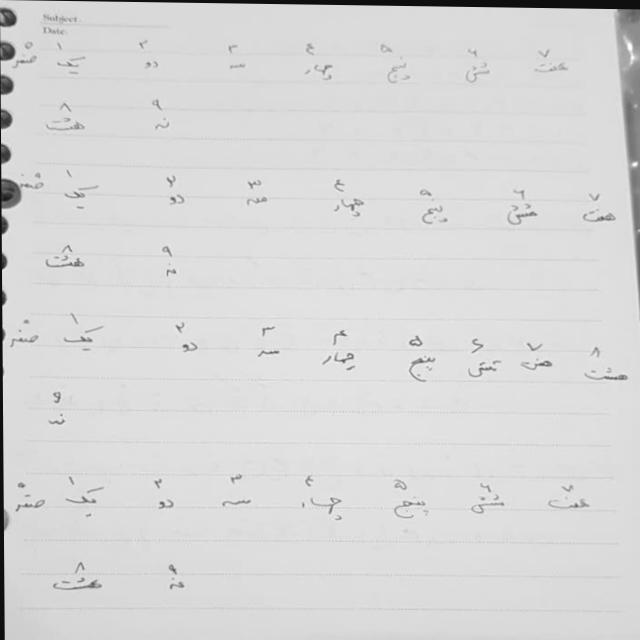 Subject:
Date:
۰ ۱ ۲ ۳ ۴ ۵ ۶ ۷
صفر یک دو سه چهار پنج شش هفت
۸ ۹
هشت نه
۱ ۲ ۳ ۴ ۵ ۶ ۷
صفر یک دو سه چهار پنج شش هفت
۸ ۹
هشت نه
۰ ۱ ۲ ۳ ۴ ۵ ۶ ۷ ۸
صفر یک دو سه چهار پنج شش هشت
۹
نه
۰ ۱ ۲ ۳ ۴ ۵ ۶ ۷
صفر یک دو سه چهار پنج شش هفت
۸ ۹
هشت نه